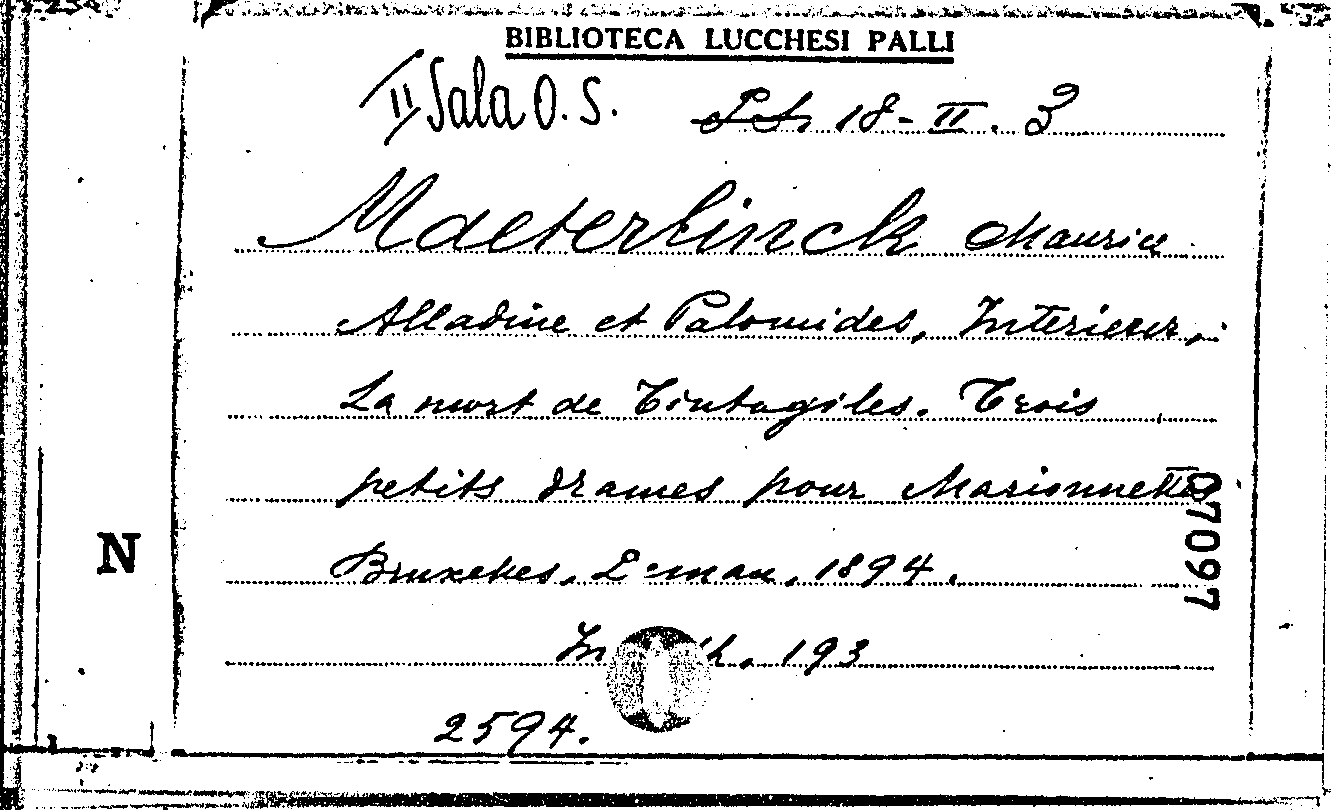 BIBLIOTECA LUCCHESI PALLI
II Sala O. S. 18 - II. 3
Maeterlinck Maurice
Alladine et Palomides, Interieur,
La mort de Tintagiles. Trois
petits drames pour Marionnettes
Bruxelles, 1894.
In 193
2594.
N
67097